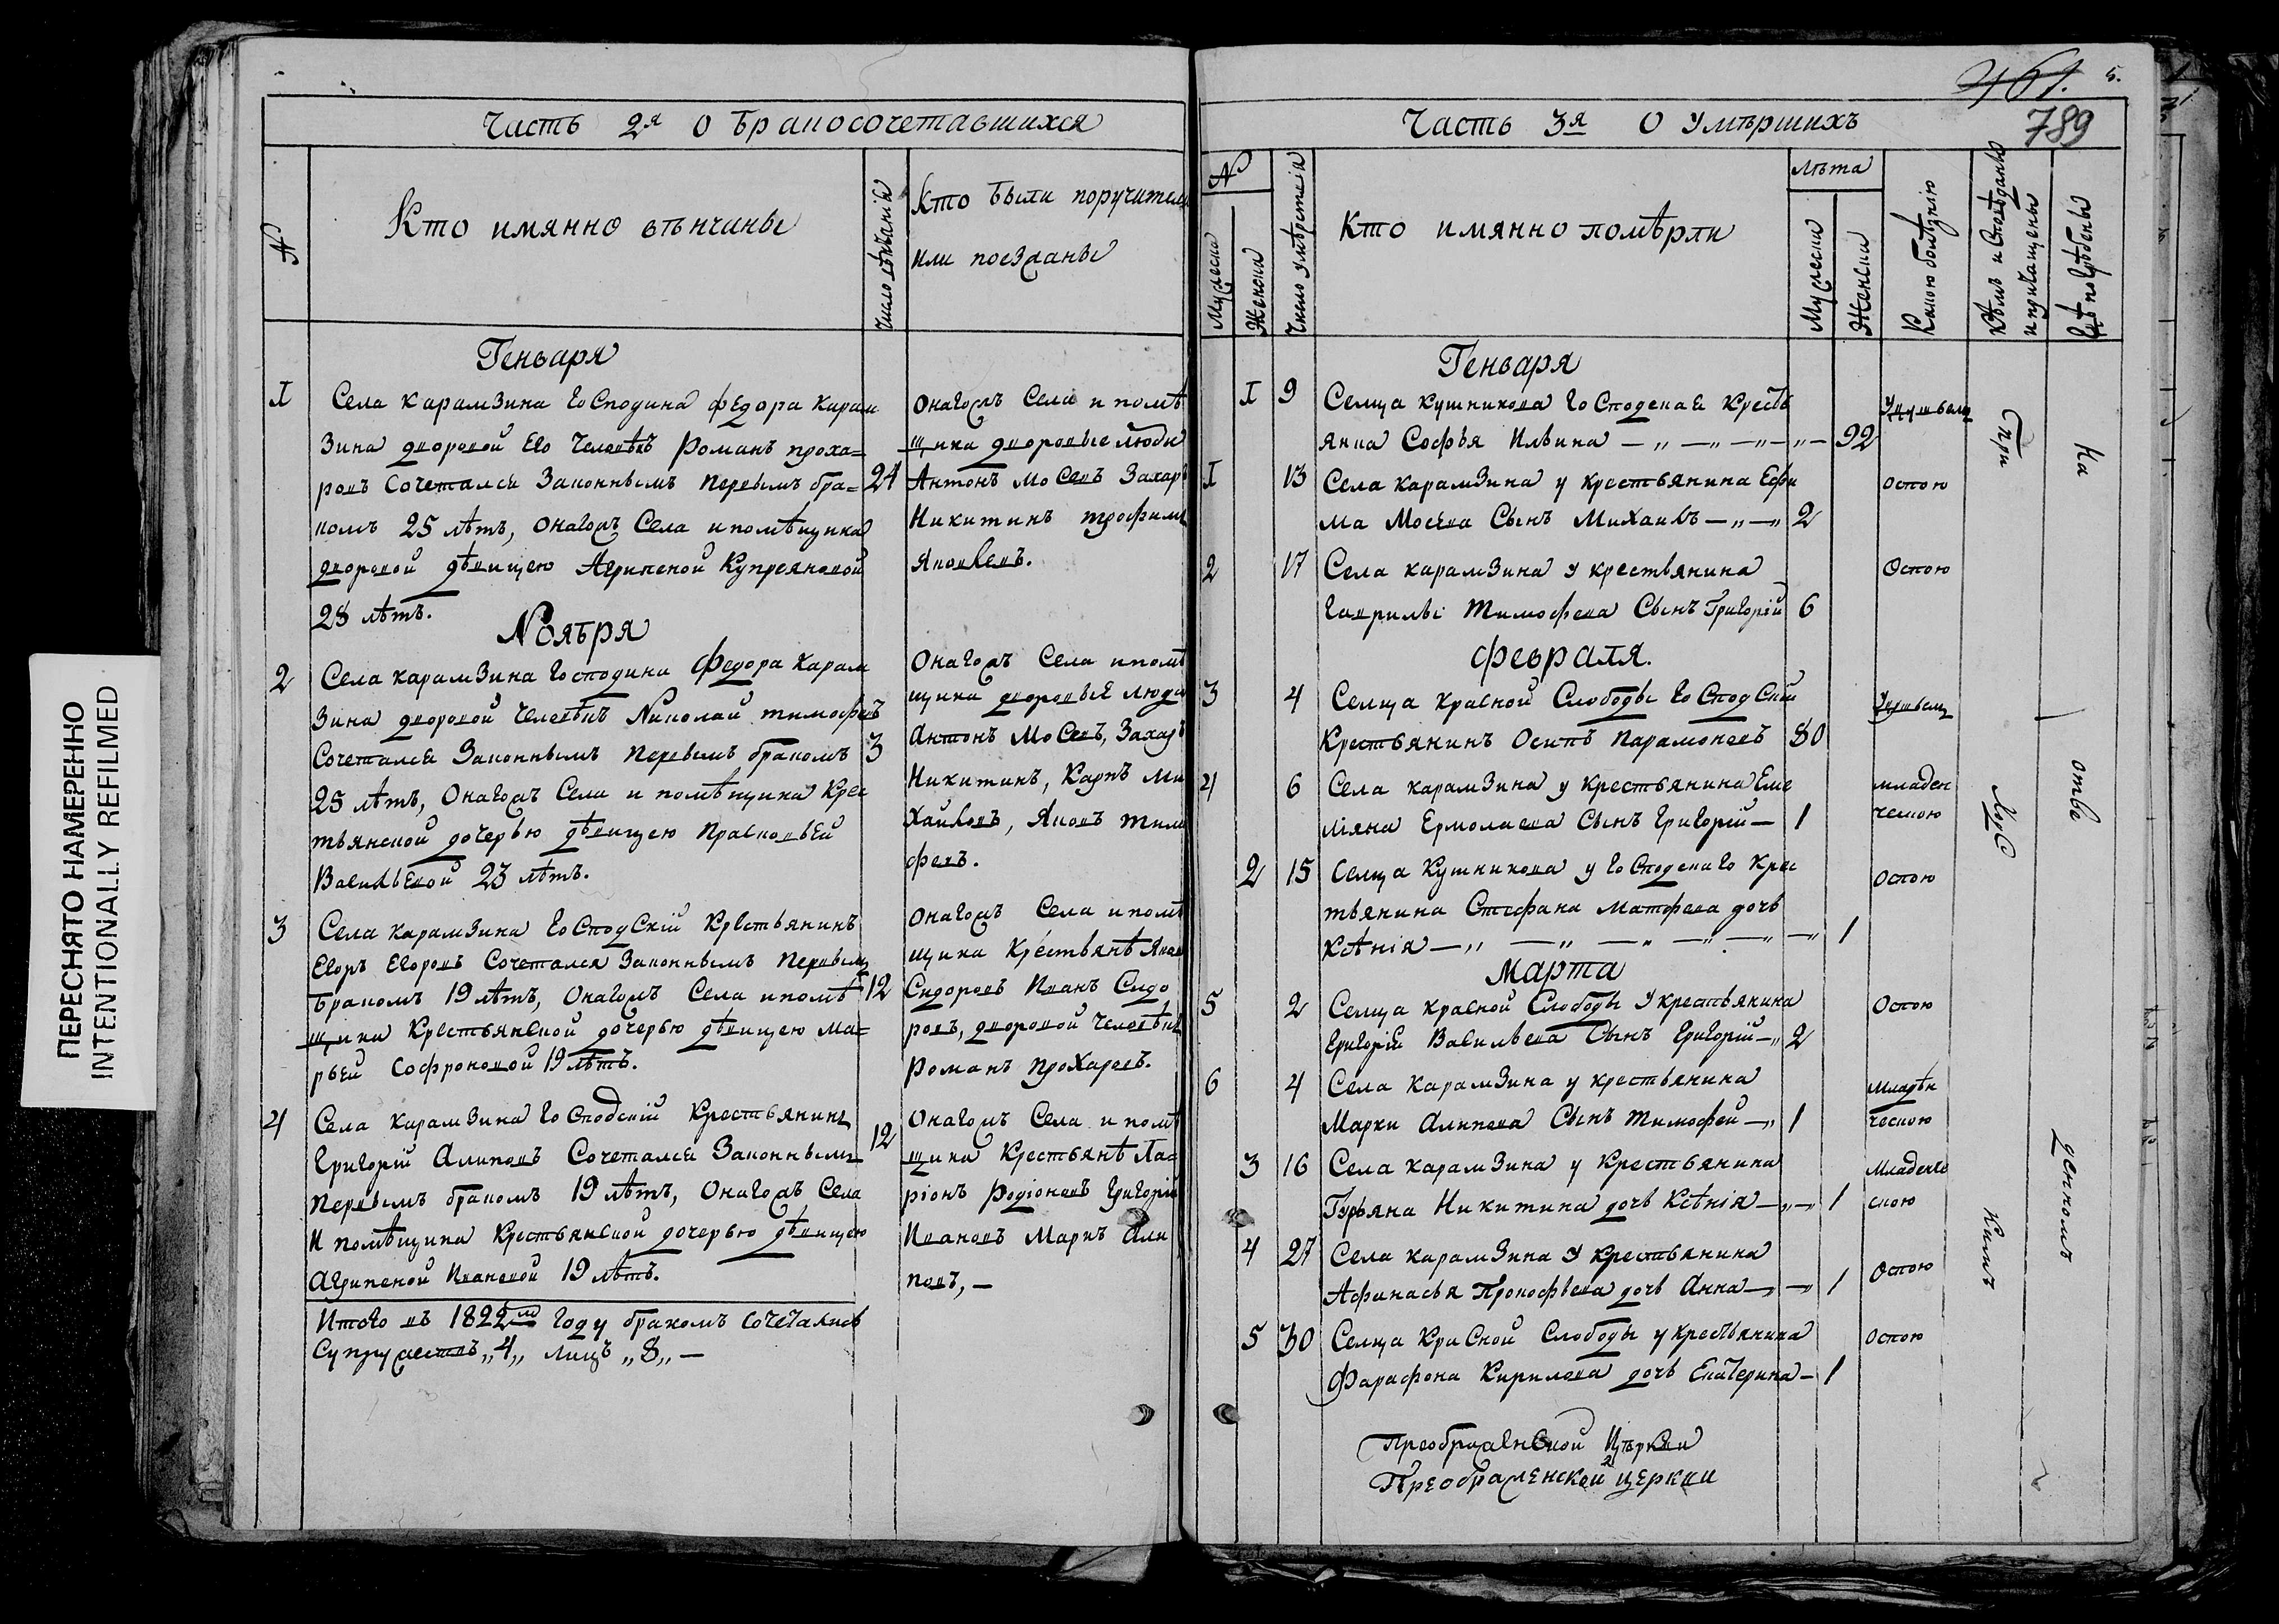 ПЕРЕСНЯТО НАМЕРЕННО
INTENTIONALLY REFILMED
Часть 2я О бракосочетавшихся
№
Кто имянно венчаны
Число венчанiя
Кто были поручители
или поезжаны
Генваря
1
Села Карамзина Господина Федора Карам
зина дворовой Его человекъ Романъ Проха=
ровъ сочетался законнымъ первымъ бра=
24
комъ 25 лѣтъ, онагожъ села и помѣщика
дворовой дѣвицею Агрипеной Купреяновой
28 лѣтъ.
онагожъ Села и помѣ
щика дворовые люди
Антонъ Мосевъ Захаръ
Никитинъ трофимъ
Яковлевъ.
Ноября
2
Села Карамзина Господина Федора Карам
зина дворовой человекъ Николай тимофевъ
сочетался законнымъ первымъ бракомъ
3
25 лѣтъ, Онагожъ Села и помѣщика крес
тьянской дочерью дѣвицею Прасковьей
Васильевой 23 лѣтъ.
Онагожъ Села и помѣ
щика дворовыя люди
Антонъ Мосевъ, Захаръ
Никитинъ, Карпъ Ми
хайловъ, Яковъ тимо
февъ.
3
Села Карамзина Господскiй Крестьянинъ
Егоръ Егоровъ сочетался законнымъ первымъ
бракомъ 19 лѣтъ, Онагожъ Села и помѣ
12
щика Крестьянской дочерью дѣвицею Ма=
рьей Софроновой 19 лѣтъ.
онагожъ Села и помѣ
щика Крестьянѣ Яковъ
Сидоровъ Иванъ Сидо
ровъ, дворовой человѣкъ
Романъ Прохаровъ.
4
Села Карамзина Господскiй Крестьянинъ
12
Григорiй Алиповъ Сочетался Законнымъ
первымъ бракомъ 19 лѣтъ, Онагожъ Села
и помѣщика Крестьянской дочерью дѣвицею
Агрипеной Ивановой 19 лѣтъ.
Онагожъ Села и помѣ
щика Крестьянѣ Ла
рiонъ Родiоновъ Григорiй
Ивановъ Маркъ Али
повъ, —
Итого въ 1822м году бракомъ сочетались
Супружествъ „4„ лицъ „8„ —
461. 5.
789
Часть 3я О умѣршихъ
№
Мужеска
Женска
Число умѣртвiя
Кто имянно помѣрли
лѣта
Мужеска
Женска
Какою болѣзнiю
Кѣмъ исповѣданы
и прiчащены
Гдѣ погребены
Генваря
1 9 Селца Кушникова Господская Кресть
янка Софья Ильина — „ — „ — „ — „ — 92
1 13 Села Карамзина у крестьянина Ефи
оспою
ма Мосева Сынъ Михаилъ — „ — „ 2
2 17 Села Карамзина у крестьянина
Оспою
Гаврилы Тимофева Сынъ Григорiй 6
Февраля.
3 4 Селца Красной Слободы Господскiй
Крестьянинъ Осипъ Парамоновъ 80
4 6 Села Карамзина у крестьянина Еме
младен
лiяна Ермолаева Сынъ Григорiй — 1
ческою
2 15 Селца Кушникова у Господскаго крес
оспою
тьянина Стефана Матфева дочь
Ксѣнiя — „ — „ — „ — „ — „ — „ 1
Марта
5 2 Селца Красной Слободы У крестьянина
Оспою
Григорiя Васильева Сынъ Григорiй — „ 2
6 4 Села Карамзина у крестьянина
Младѣн
Марки Алипова Сынъ Тимофей — „ 1
ческою
3 16 Села Карамзина у Крестьянина
Младенче
Гурьяна Никитина дочь Ксѣнiя — „ — 1
скою
4 27 Села Карамзина У крестьянина
Оспою
Афанасья Прокофьева дочь Анна — „ — 1
5 30 Селца Красной Слободы у крестьянина
оспою
Фарафона Кирилова дочь Екатерина — 1
При
На
Преображенской Цѣркви
Преображенской церкви